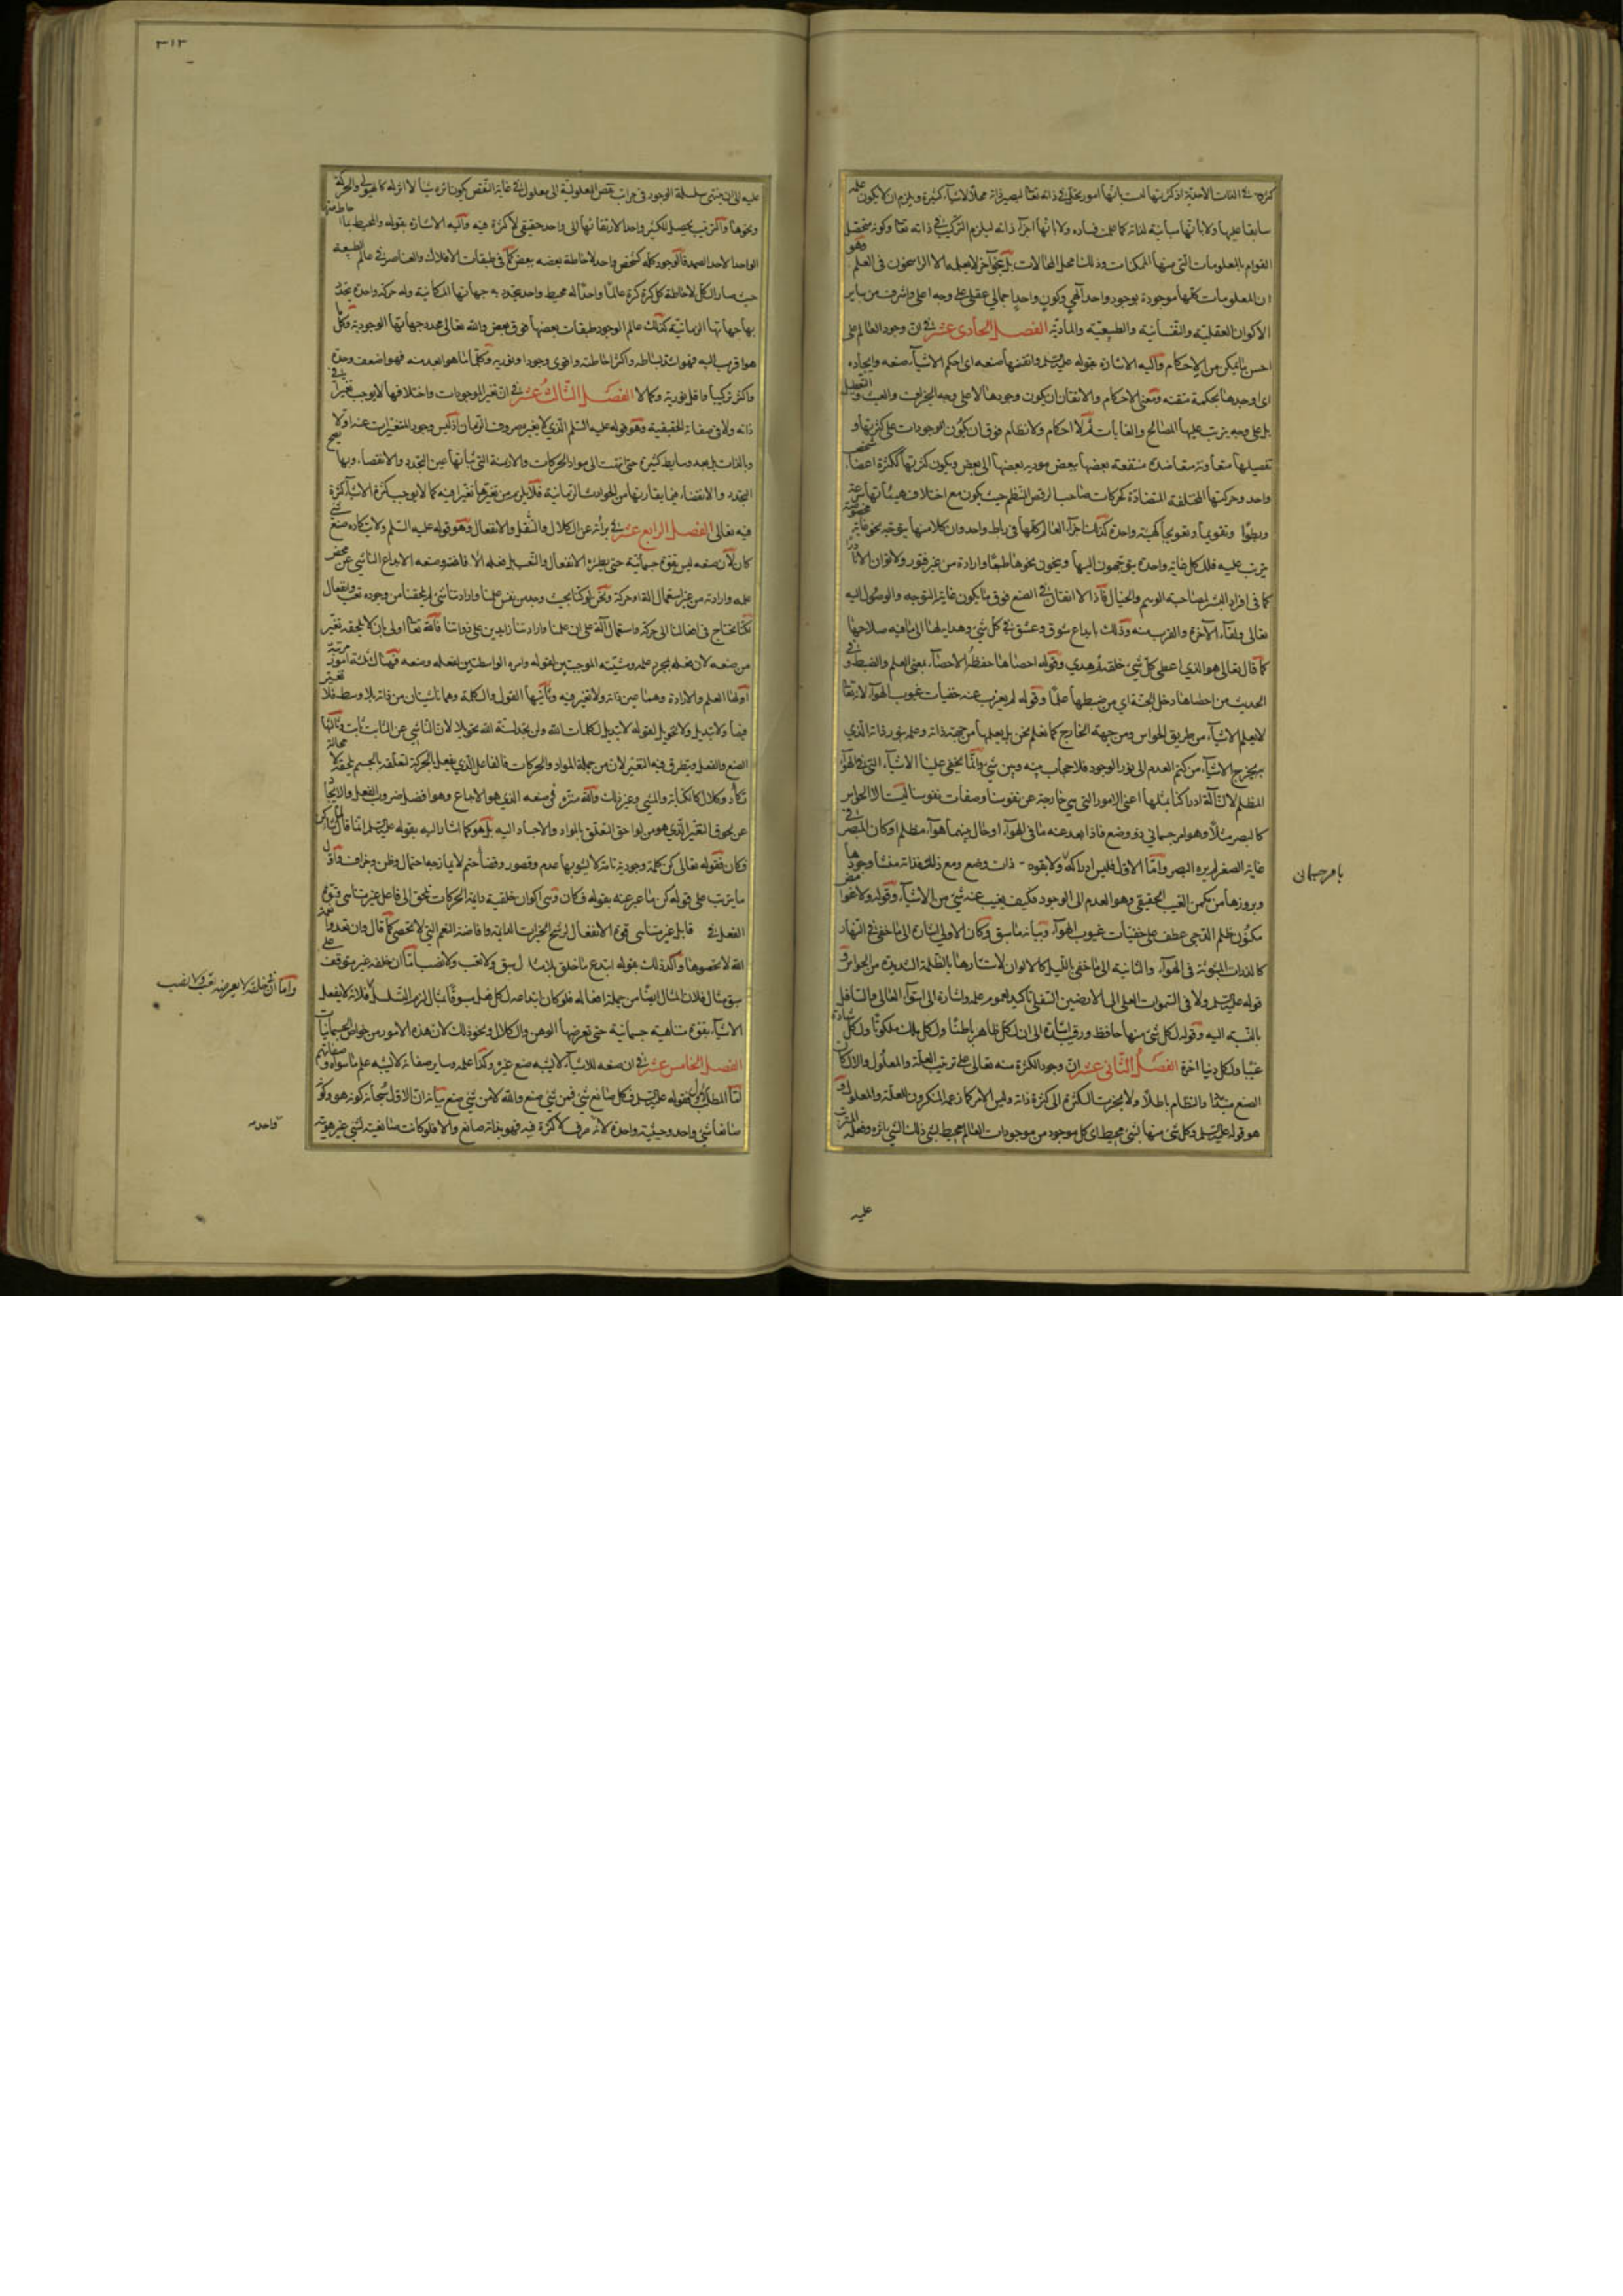 كثرة في الذات الاحدية اذ كثرتها ليست بانها امور تحل في ذاته تعالى ليصير ذاته محلا لاشياء كثيرة ويلزم ان لا يكون علمه
سابقا عليها ولا بانها مباينة لذاته كما علمت فساده ولا بانها اجزاء ذاته ليلزم التركيب في ذاته تعالى وكونه متحصل
القوام بالمعلومات التي منها الممكنات وذلك امحل المحالات بل بنحو آخر لا يعلمه الا الراسخون في العلم وهو
ان المعلومات كلها موجودة بوجود واحد آلهي وكون واحد اجمالي عقلي على وجه اعلى واشرف من ساير
الاكوان العقلية والنفسانية والطبيعية والمادية الفصل الحادى عشر في ان وجود العالم على
احسن ما يمكن من الاحكام واليه الاشارة بقوله عليه السلم واتقنها صنعه اى احكم الاشياء صنعه وايجاده
اى اوجدها بحكمة متقنه ومعنى الاحكام والاتقان ان يكون وجودها لا على وجه الجزاف والعبث والتعطيل
بل على وجه يترتب عليها المصالح والغايات ثم لا احكام ولا نظام فوق ان يكون الموجودات على كثرتها و
تفصيلها متعاونة متعاضدة منتفعة بعضها ببعض مودية بعضها الى بعض ويكون كثرتها ككثرة اعضاء شخص
واحد وحركتها المختلفة المتضادة كحركات صاحب الرقص المنظم حيث يكون مع اختلاف هيئاتها سرعة
وبطؤا وتقويما وتعويجا كهيئة واحدة كذلك اجزاء العالم كلها في رباط واحد وان كلا منها يتوجه نحو غاية مخصوصة
يترتب عليه فللكل غاية واحدة يتوجهون اليها وينحون نحوها طبعا وارادة من غير فتور ولا توان الا نادرا
كما في افراد البشر لمصاحبة الوهم والخيال فاذا لا اتقان في الصنع فوق ما يكون غاية التوجه والوصول اليه
تعالى ولقاء الآخرة والقرب منه وذلك بايداع شوق وعشق في كل شئ وهداية لها الى ما فيه صلاحها
كما قال تعالى هو الذي اعطى كل شئ خلقه ثم هدي وقوله احصاها حفظه الاحصاء بمعنى العلم والضبط و في
الحديث من احصاها دخل الجنة اي من ضبطها علما وقوله لم يعزب عنه خفيات غيوب الهواء لانه تعالى
لا يعلم الاشياء من طريق الحواس ومن جهة الخارج كما نعلم نحن بل يعلمها من جهة ذاته وعلمه بنور ذاته الذي
به يخرج الاشياء من كتم العدم الى نور الوجود فلا حجاب بينه وبين شئ وانما يخفى علينا الاشياء التي في الهواء
المظلم لان آلة ادراكنا بمثلها اعنى الامور التي هي خارجة عن نفوسنا وصفات نفوسنا ليست الا الحواس
كالبصر مثلا وهو امر جسماني ذو وضع فاذا بعد عنه ما في الهواء او حال بينهما هواء مظلم او كان المبصر في
غاية الصغر لم يره البصر واما الاول فليس ادراكه ولا بقوه ذات وضع ومع ذلك فذاته منشأ وجودها
بامر جسمانى
وبروزها من مكمن الغيب الحقيقي وهو العدم الى الوجود فكيف يغيب عنه شئ من الاشياء وقوله ولا غوامض
مكنون ظلم الدجى عطف على خفيات غيوب الهواء وبيانه ما سبق وكان الاولى اشارة الى ما خفى في النهار
كالذرات المبثوثة في الهواء والثانية الى ما خفى بالليل كالالوان لاستتارها بالظلمة الشديدة من الحواس و
قوله عليه السلم ولا في السموات العلى الى الارضين السفلى تأكيد لعموم علمه واشارة الى استواء العالى والسافل
بالنسبة اليه وقوله لكل شئ منها حافظ ورقيب اشارة الى ان لكل ظاهر باطنا ولكل ملك ملكوتا ولكل شهادة
غيبا ولكل دنيا اخرة الفصل الثانى عشر ان وجود الكثرة منه تعالى على ترتيب العلة والمعلول والا لكان
الصنع عبثا والنظام باطلا ولا ينجر تلك الكثرة الى كثرة ذاته وليس الامر كما زعمه المنكرون العلة والمعلول و
هو قوله عليه السلم وكل شئ منها بشئ محيط اى كل موجود من موجودات العالم محيط بشئ ذلك الشئ باثره وفعله المترتب
عليه
٣١٣
عليه الى ان ينتهى سلسلة الوجود في مراتب نقص المعلولية الى معلول في غاية النقص يكون اثره شيئا لا اثر له كالهيولى والحركة
ونحوها وآكثر ترتيب يحصل للكثير واحدا لارتقائها الى واحد حقيقي لا كثرة فيه واليه الاشارة بقوله والمحيط بما احاط منها
الواحد الاحد الصمد فالوجود كله كشخص واحد لاحاطة بعضه ببعض كما في طبقات الافلاك والعناصر في عالم الطبيعة
حيث صار الكل لاحاطة كل كرة كرة عالما واحدا له محيط واحد يتحدد به جهاتها المكانية وله حركة واحدة يتحدد
بها جهاتها الزمانية كذلك عالم الوجود طبقات بعضها فوق بعض والله تعالى محدد جهاتها الوجودية وكل ما
هو اقرب اليه فهو اشد بساطة واكثر احاطة واقوى وجودا ونورية وكلما هو ابعد منه فهو اضعف وحدة
واكثر تركيبا واقل نورية وكمالا الفصل الثالث عشر في ان تغير الموجودات واختلافها لا يوجب تغيرا في
ذاته ولا في صفاته الحقيقية وهو قوله عليه السلم الذي لا يغيره صروف الزمان اذ ليس وجود المتغيرات عنه اولا
وبالذات بل بعد وسايط كثيرة حتى انتهت الى مواد الحركات والازمنة التي ثباتها عين التجدد والانقضاء وبها يصح
التجدد والانقضاء فيما يقارنها من الحوادث الزمانية فلا يلزم من تغيرها تغيرا فيه كما لا يوجب كثرة الاشياء كثرة
فيه تعالى الفصل الرابع عشر في برائته عن الكلال والثقل والانفعال وهو قوله عليه السلم ولا يتكاده صنع شئ
كان لان صنعه ليس بقوة جسمانية حتى يطرء الانفعال والتعب بل فعله الافاضة وصنعه الابداع الناشي عن محض
علمه وارادته من غير استعمال آلة او حركة ونحن لو كنا بحيث وجد من نفس علمنا وارادتنا شئ لم يلحقنا من وجوده تعب وانفعال
لكنا نحتاج في افعالنا الى حركة واستعمال آلة على ان علمنا وارادتنا زايدين على ذواتنا فالله تعالى اولى بان لا يلحقه تغير
من صنعه لان فعله بمجرد علمه ومشيته الموجبتين لقوله وامره الواسطتين لفعله وصنعه فهناك ثلثة امور مرتبة
اولها العلم والارادة وهما عين ذاته ولا تغير فيه وثانيها القول والكلمة وهما ناشيان من ذاته بلا وسط فلا تغير
فيها ولا تبديل ولا تحويل لقوله لا تبديل لكلمات الله ولن تجد لسنة الله تحويلا لان الناشي عن الثابت ثابت وثالثها
الصنع والفعل ويتطرق فيه التغير لان من جملة المواد والحركات فالفاعل الذي يفعل بالحركة لتعلقه بالجسم يلحقه لا محالة
تكأد وكلال كالكتابة والمشي وغير ذلك والله منزه في صنعه الذي هو الابداع وهو افضل ضروب الفعل والايجاد
عن لحوق التغير الذي هو من لواحق التعلق بالمواد والاجساد اليه بل هو كما اشار اليه بقوله عليه السلم انما قال لما شاء كن
فكان فقوله تعالى كن كلمة وجودية تامة لا يشوبها عدم وقصور وقضاء حتم لا يمازجه احتمال وظن وجزاف واول
ما يترتب على قوله كن ما عبر عنه بقوله فكان وهى اكوان خلقية دايمة الحركات تلحق الى فاعل غير متناهى قوة
الفعل في قابل غير متناهى قوة الانفعال لرشح الخيرات الدايمة وافاضة النعم التي لا تحصى كما قال وان تعدوا نعمة
الله لا تحصوها وآكد ذلك بقوله ابتدع ما خلق بلا مثال سبق ولا تعب ولا نصب اما ان خلقه غير متوقف على
واما ان خلقه لا يعرضه تعب ولا نصب
سبق مثال فلان المثال ايضا من جملة افعاله فلو كان ابتداعه لكل فعل مسبوقا بمثال لزم التسلسل فلانه لا يفعل
الاشياء بقوة متناهية جسمانية حتى تعرضها الوهن والكلال ونحو ذلك لان هذه الامور من خواص الجسمانيات
الفصل الخامس عشر في ان صنعه للاشياء لا يشبه صنع غيره وكذا علمه وساير صفاته لا يشبه علم ما سواه وصفاتهم
اما المطلب الاول فبقوله عليه السلم فكل صانع شئ فمن شئ صنع والله لا من شئ صنع بيانه ان الاول سبحانه كونه هو وكونه
صانعا شئ واحد وحيثية واحدة لانه صرف لا كثرة فيه فهو بذاته صانع والا فلو كانت صانعيته لشئ غير هويته
واحدة